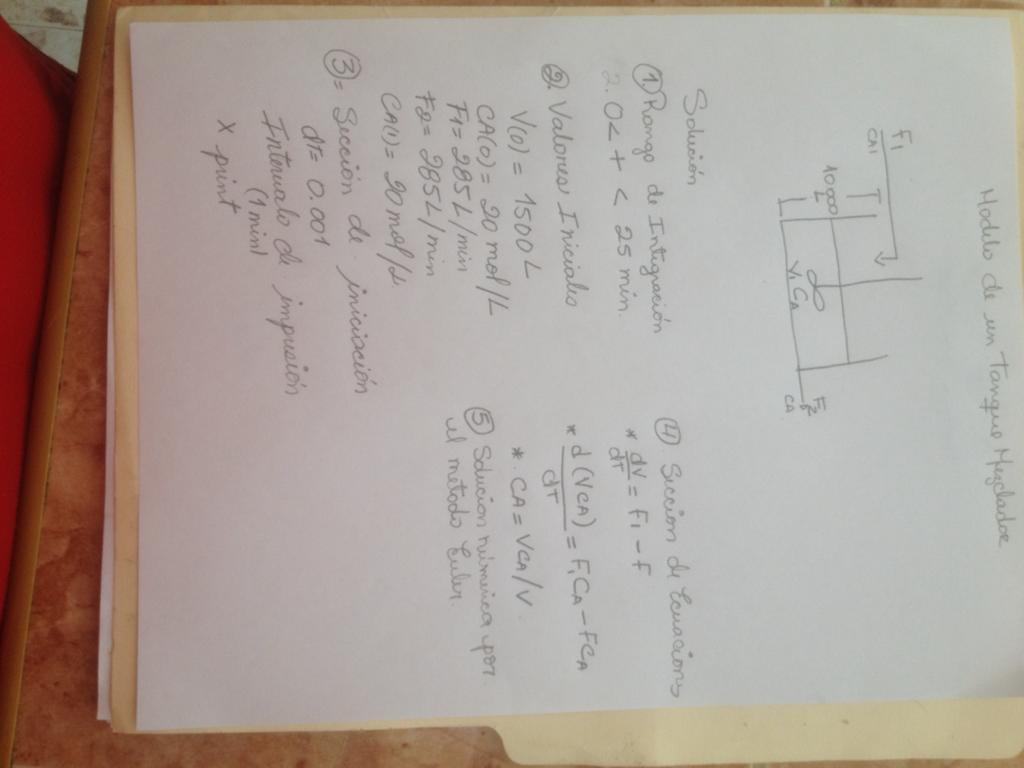 Modelo de un Tanque Mezclador
F1
CA1
10000
L
V1 CA
F2
CA
Solución
① Rango de Integración
2. 0< t < 25 min.
②. Valores Iniciales
V(0) = 1500 L
CA(0) = 20 mol/L
F1= 285 L/min
F2= 285 L/min
CA(1)= 20 mol/L
③= Sección de iniciación
dt= 0.001
Intervalo de impusión
(1 min)
x print
④. Seccion de Ecuaciones
* dv/dt = F1 - F
* d(VCA)/dt = F1CA - FCA
* CA = VCA/V
⑤ Solucion númerica por
el metodo Euler.